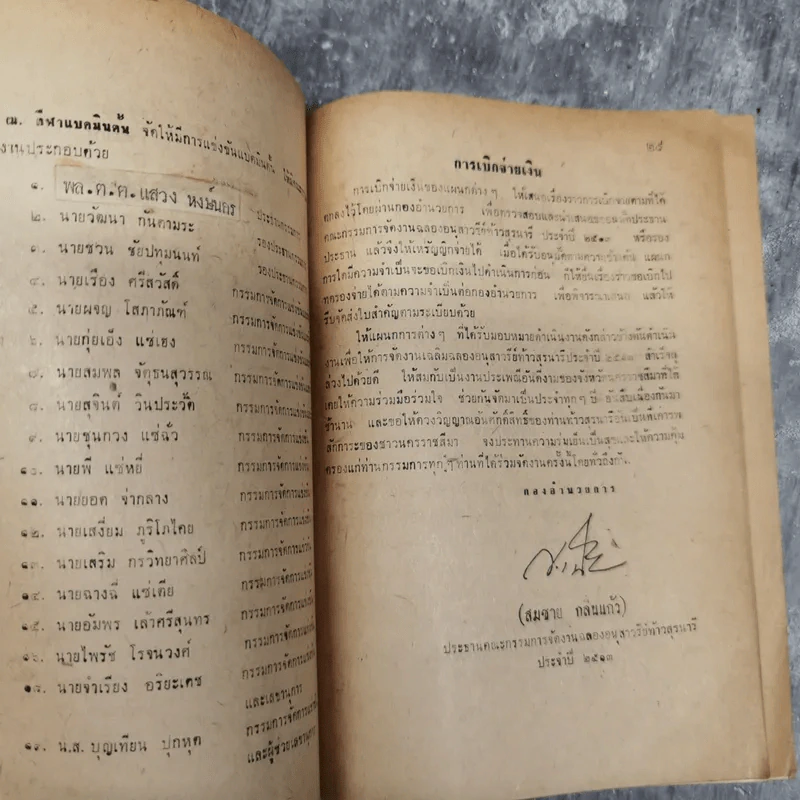 ฌ. กีฬาแบดมินตัน จัดให้มีการแข่งขันแบดมินตัน
งานประกอบด้วย
๑. พล.ต.ต.แสวง หงษ์นคร ประธานกรรมการ
๒. นายวัฒนา กันตามระ รองประธานกรรมการ
๓. นายชวน ชัยปทุมนนท์ รองประธานกรรมการ
๔. นายเรือง ศรีสวัสดิ์ กรรมการจัดการแข่งขัน
๕. นายผจญ โสภาภัณฑ์ กรรมการจัดการแข่งขัน
๖. นายกุ่ยเอ็ง แซ่เฮง กรรมการจัดการแข่งขัน
๗. นายสมพล จัตุธนสุวรรณ กรรมการจัดการแข่งขัน
๘. นายสุจินต์ วินประวัติ กรรมการจัดการแข่งขัน
๙. นายชุนกวง แซ่ฉั่ว กรรมการจัดการแข่งขัน
๑๐. นายพี แซ่หยี่ กรรมการจัดการแข่งขัน
๑๑. นายยอด จ่ากลาง กรรมการจัดการแข่งขัน
๑๒. นายเสงี่ยม ภูริโภไคย กรรมการจัดการแข่งขัน
๑๓. นายเสริม กรวิทยาศิลป์ กรรมการจัดการแข่งขัน
๑๔. นายฉางฉี่ แซ่เตีย กรรมการจัดการแข่งขัน
๑๕. นายอัมพร เล้าศรีสุนทร กรรมการจัดการแข่งขัน
๑๖. นายไพรัช โรจนวงศ์ กรรมการจัดการแข่งขัน
๑๗. นายจำเรียง อริยะเดช กรรมการจัดการแข่งขัน
และเลขานุการ
๑๘. น.ส. บุญเทียน ปุกหุต กรรมการจัดการแข่งขัน
และผู้ช่วยเลขานุการ
๒๕
การเบิกจ่ายเงิน
การเบิกจ่ายเงินของแผนกต่าง ๆ ให้เสนอเรื่องราวการเบิกจ่ายตามที่ได้
ตกลงไว้โดยผ่านกองอำนวยการ เพื่อตรวจสอบและนำเสนอขออนุมัติประธาน
คณะกรรมการจัดงานฉลองอนุสาวรีย์ท้าวสุรนารี ประจำปี ๒๕๑๓ หรือรอง
ประธาน แล้วจึงให้เหรัญญิกจ่ายได้ เมื่อได้รับอนุมัติตามความจำเป็น แผนก
การใดมีความจำเป็นจะขอเบิกเงินไปดำเนินการก่อน ก็ให้ยื่นเรื่องราวขอเบิกไป
ทดรองจ่ายได้ตามความจำเป็นต่อกองอำนวยการ เพื่อพิจารณาเสนอ แล้วให้
รีบจัดส่งใบสำคัญตามระเบียบด้วย
ให้แผนกการต่าง ๆ ที่ได้รับมอบหมายดำเนินงานดังกล่าวข้างต้นดำเนิน
งานเพื่อให้การจัดงานเฉลิมฉลองอนุสาวรีย์ท้าวสุรนารีประจำปี ๒๕๑๓ สำเร็จลุ
ล่วงไปด้วยดี ให้สมกับเป็นงานประเพณีอันดีงามของจังหวัดนครราชสีมาที่ได้
เคยให้ความร่วมมือร่วมใจ ช่วยกันจัดมาเป็นประจำทุก ๆ ปี อันสืบเนื่องกันมา
ช้านาน และขอให้ดวงวิญญาณอันศักดิ์สิทธิ์ของท่านท้าวสุรนารีอันเป็นที่เคารพ
สักการะของชาวนครราชสีมา จงประทานความร่มเย็นเป็นสุขและให้ความคุ้ม
ครองแก่ท่านกรรมการทุก ๆ ท่านที่ได้ร่วมจัดงานครั้งนี้โดยทั่วถึงกัน.
กองอำนวยการ
(สมชาย กลิ่นแก้ว)
ประธานคณะกรรมการจัดงานฉลองอนุสาวรีย์ท้าวสุรนารี
ประจำปี ๒๕๑๓